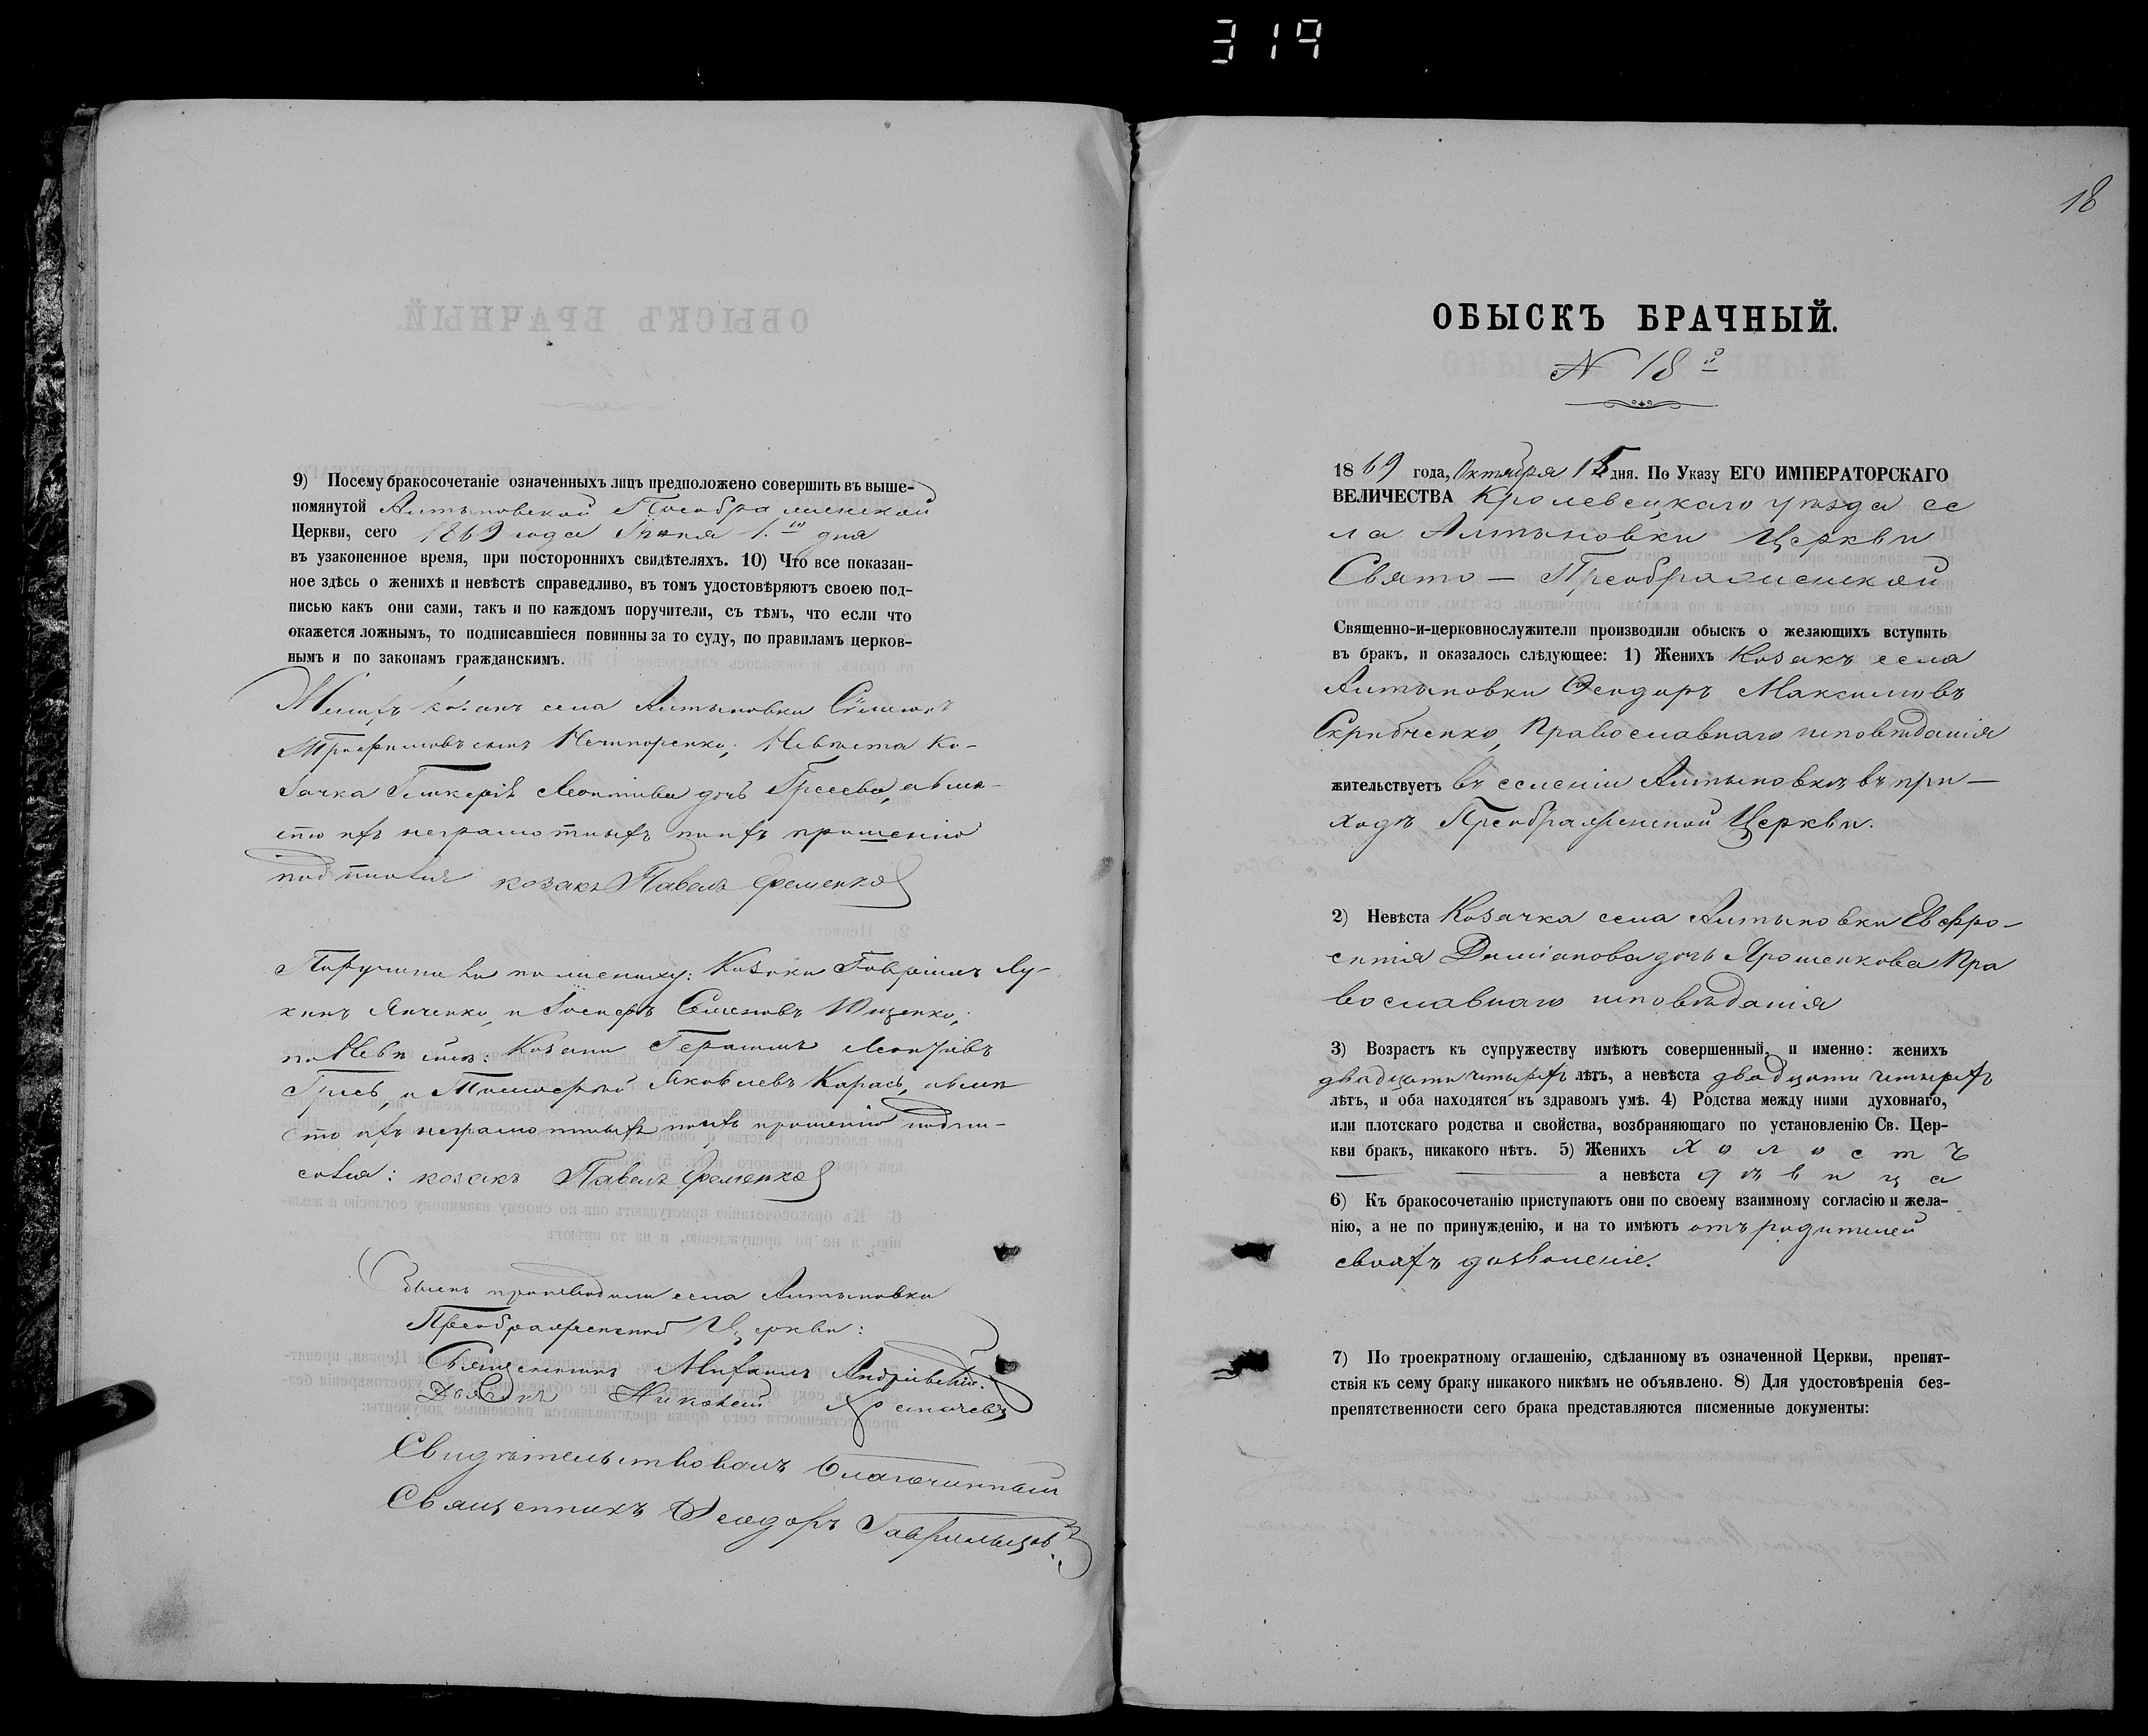 319
9) Посему бракосочетаніе означенныхъ лицъ предположено совершить въ выше-
помянутой Алтыновской Преображенской
Церкви, сего 1869 года Іюня 1.го дня
въ узаконенное время, при постороннихъ свидѣтеляхъ. 10) Что все показан-
ное здѣсь о женихѣ и невѣстѣ справедливо, въ томъ удостовѣряютъ своею под-
писью какъ они сами, такъ и по каждомъ поручители, съ тѣмъ, что если что
окажется ложнымъ, то подписавшіеся повинны за то суду, по правиламъ церков-
нымъ и по законамъ гражданскимъ.
Женихъ козакъ села Алтыновки Симеонъ
Трофимовъ сынъ Нечипоренко; Невѣста ко-
зачка Гликерія Леонтіева дочь Грисева, а вмѣ-
сто ихъ неграмотныхъ по ихъ прошенію
подписался козакъ Павелъ Еременко
Поручители по жениху: Козаки Гавріилъ Лу-
кинъ Янченко, и Іосифъ Семеновъ Ющенко;
по Невѣстѣ: Козаки Герасимъ Леонтіевъ
Грись, и Тимофей Яковлевъ Карась, а вмѣ
сто ихъ неграмотныхъ по ихъ прошенію подпи-
сался: козакъ Павелъ Еременко
Обыскъ производили села Алтыновки
Преображенской Церкви:
Священникъ Михаилъ Андріевскій.
Дьячекъ Николай
Свидѣтельствовалъ Благочинный
Священникъ Феодоръ Гаврильцовъ
18
ОБЫСКЪ БРАЧНЫЙ.
N 18й
1869 года, Октября 15 дня. По Указу ЕГО ИМПЕРАТОРСКАГО
ВЕЛИЧЕСТВА Кролевецкаго уѣзда се
ла Алтыновки Церкви
Свято — Преображенской
Священно-и-церковнослужители производили обыскъ о желающихъ вступить
въ бракъ, и оказалось слѣдующее: 1) Женихъ Козакъ села
Алтыновки Феодоръ Максимовъ
Скрибченко, Православнаго исповѣданія
жительствуетъ въ селеніи Алтыновкѣ въ при—
ходѣ Преображенской Церкви.
2) Невѣста Козачка села Алтыновки Евфро-
синія Даміанова дочь Ярошенкова Пра
вославнаго исповѣданія
3) Возрастъ къ супружеству имѣютъ совершенный, и именно: женихъ
двадцати четырехъ лѣтъ, а невѣста двадцати четырехъ
лѣтъ, и оба находятся въ здравомъ умѣ. 4) Родства между ними духовнаго,
или плотскаго родства и свойства, возбраняющаго по установленію Св. Цер-
кви бракъ, никакого нѣтъ. 5) Женихъ холостъ
а невѣста дѣвица
6) Къ бракосочетанію приступаютъ они по своему взаимному согласію и жела-
нію, а не по принужденію, и на то имѣютъ отъ родителей
своихъ дозволеніе.
7) По троекратному оглашенію, сдѣланному въ означенной Церкви, препят-
ствія къ сему браку никакого никѣмъ не объявлено. 8) Для удостовѣренія без-
препятственности сего брака представляются писменные документы: